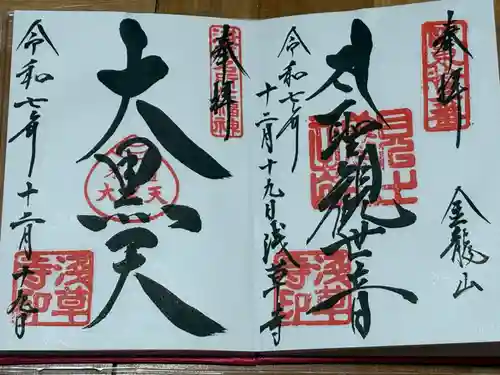 奉拝
金龍山
大聖観世音
令和七年
十二月十九日
浅草寺
浅草寺印
奉拝
浅草名所七福神
大黒天
令和七年
十二月十九日
浅草寺印